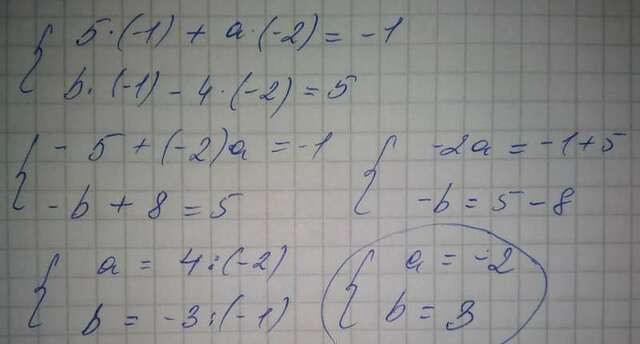 { 5·(-1) + a·(-2) = -1
b·(-1) - 4·(-2) = 5
{ - 5 + (-2)a = -1
-b + 8 = 5
{ -2a = -1+5
-b = 5-8
{ a = 4:(-2)
b = -3:(-1)
{ a = -2
b = 3